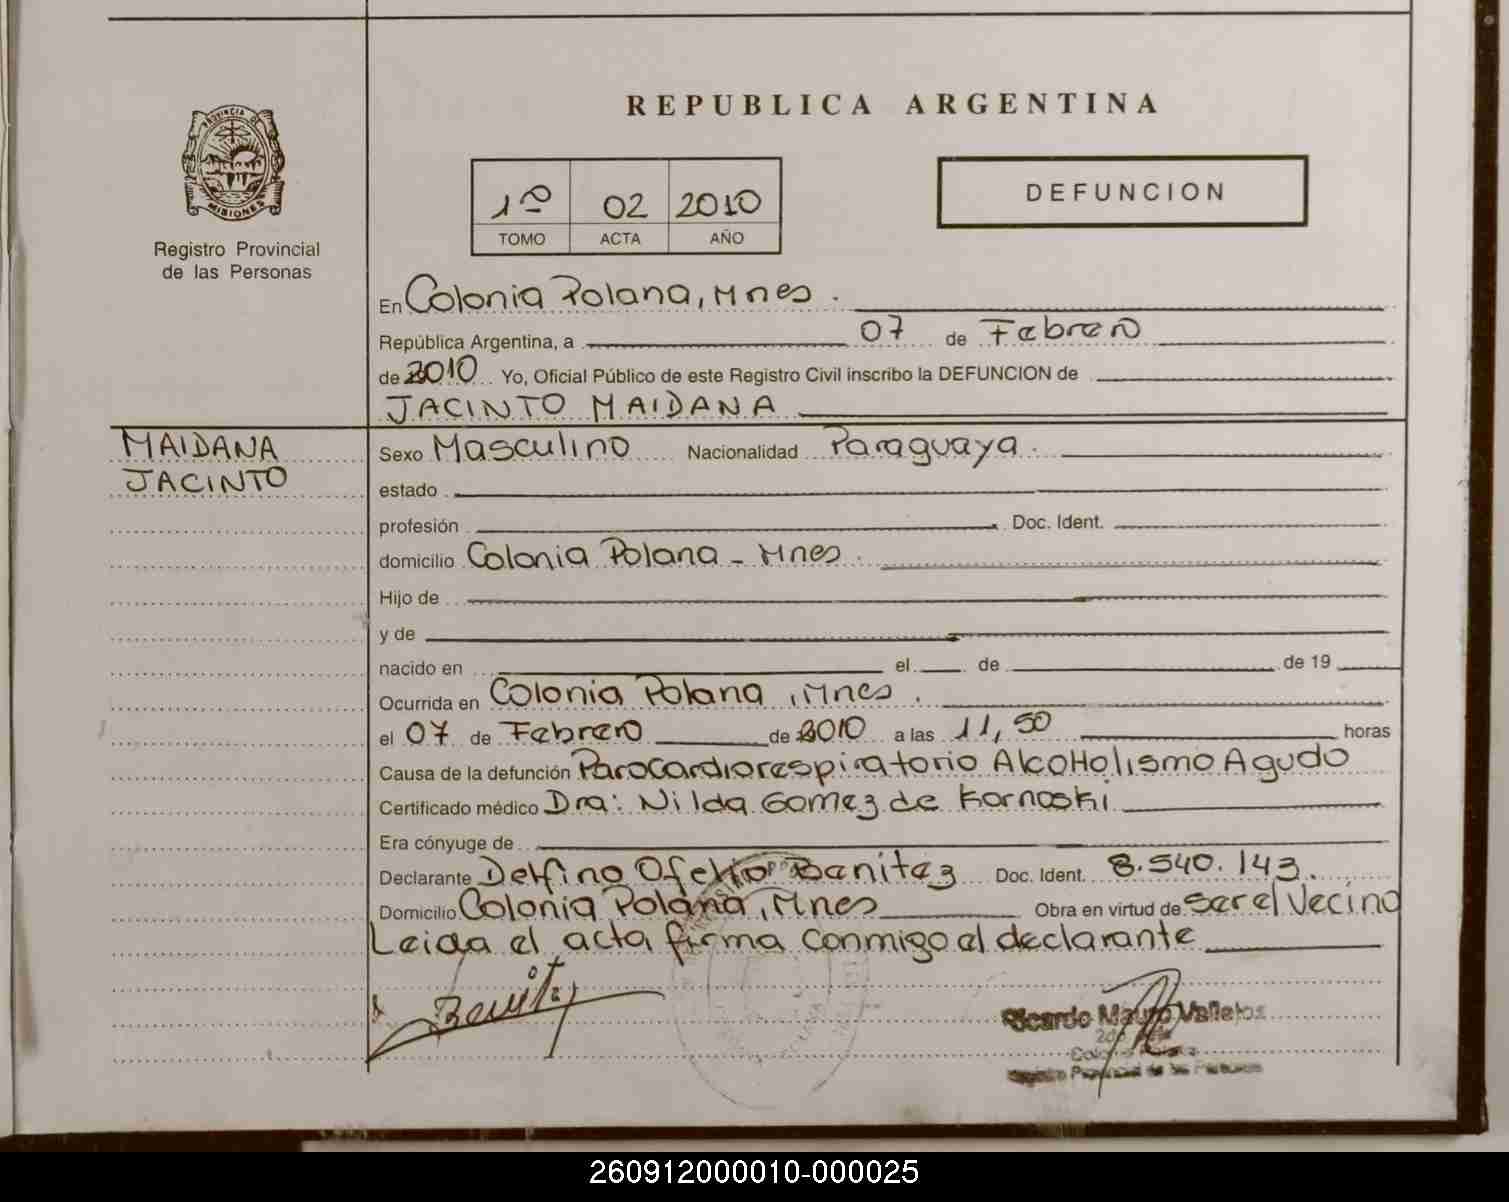 REPUBLICA ARGENTINA
PROVINCIA DE
MISIONES
Registro Provincial
de las Personas
1º 02 2010
TOMO ACTA AÑO
DEFUNCION
En Colonia Polana, Mnes.
República Argentina, a 07 de Febrero
de 2010 Yo, Oficial Público de este Registro Civil inscribo la DEFUNCION de
JACINTO MAIDANA
MAIDANA
JACINTO
Sexo Masculino Nacionalidad Paraguaya.
estado
profesión Doc. Ident.
domicilio Colonia Polana - Mnes.
Hijo de
y de
nacido en el de de 19
Ocurrida en Colonia Polana, Mnes.
el 07 de Febrero de 2010 a las 11,50 horas
Causa de la defunción Parocardiorespiratorio Alcoholismo Agudo
Certificado médico Dra: Nilda Gomez de Kornoski
Era cónyuge de
Declarante Delfino Ofelio Benitez Doc. Ident. 8.540.143.
Domicilio Colonia Polana, Mnes Obra en virtud de ser el Vecino
Leida el acta firma conmigo el declarante
Benitez
Ricardo Mauro Vallejos
Registro Provincial de las Personas
260912000010-000025